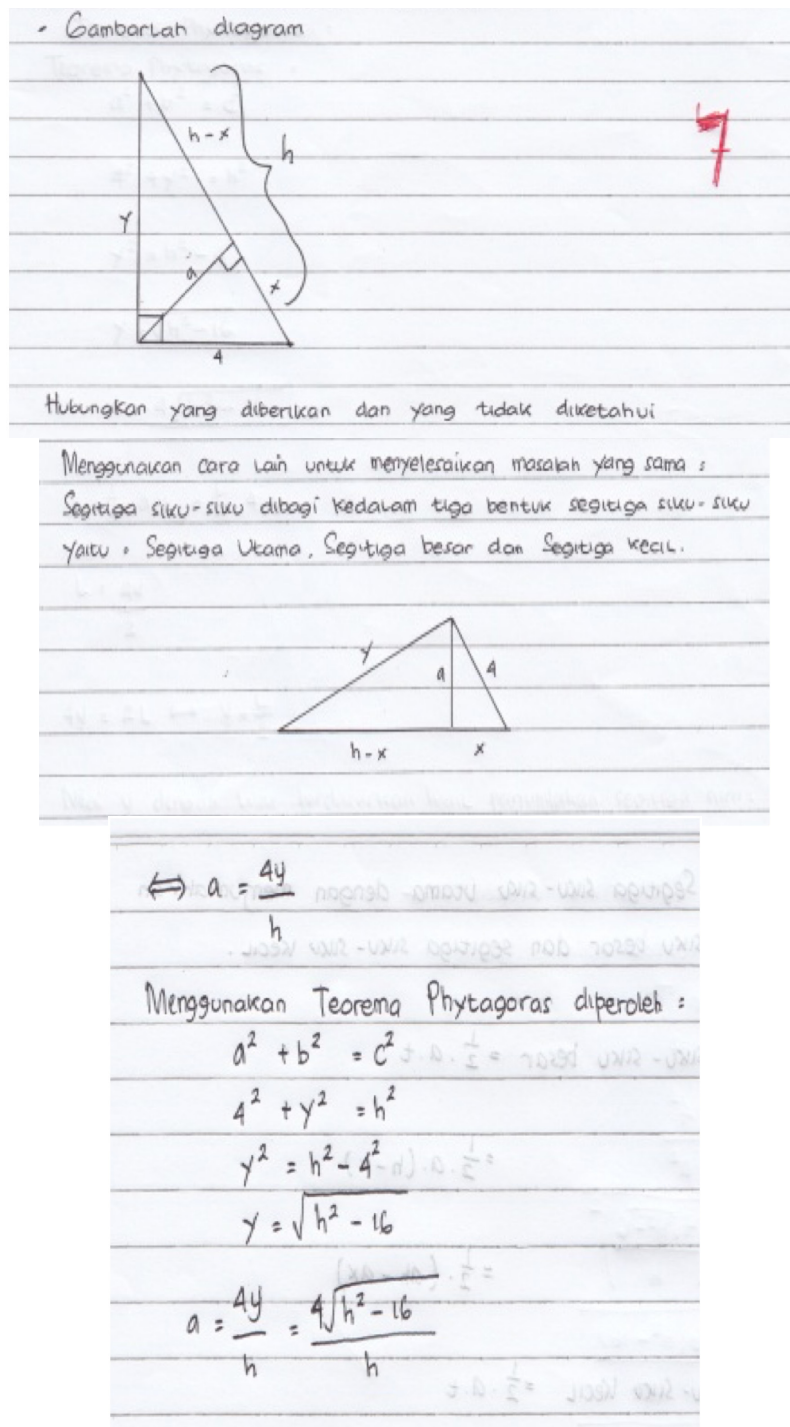 • Gambarlah diagram
h - x
h
7
y
a
x
4
Hubungkan yang diberikan dan yang tidak diketahui
Menggunakan cara lain untuk menyelesaikan masalah yang sama :
Segitiga siku-siku dibagi kedalam tiga bentuk segitiga siku-siku
yaitu : Segitiga Utama, Segitiga besar dan Segitiga kecil.
y
a
4
h - x
x
⇔ a = 4y/h
Menggunakan Teorema Phytagoras diperoleh :
a² + b² = c²
4² + y² = h²
y² = h² - 4²
y = √(h² - 16)
a = 4y/h = 4√(h² - 16)/h